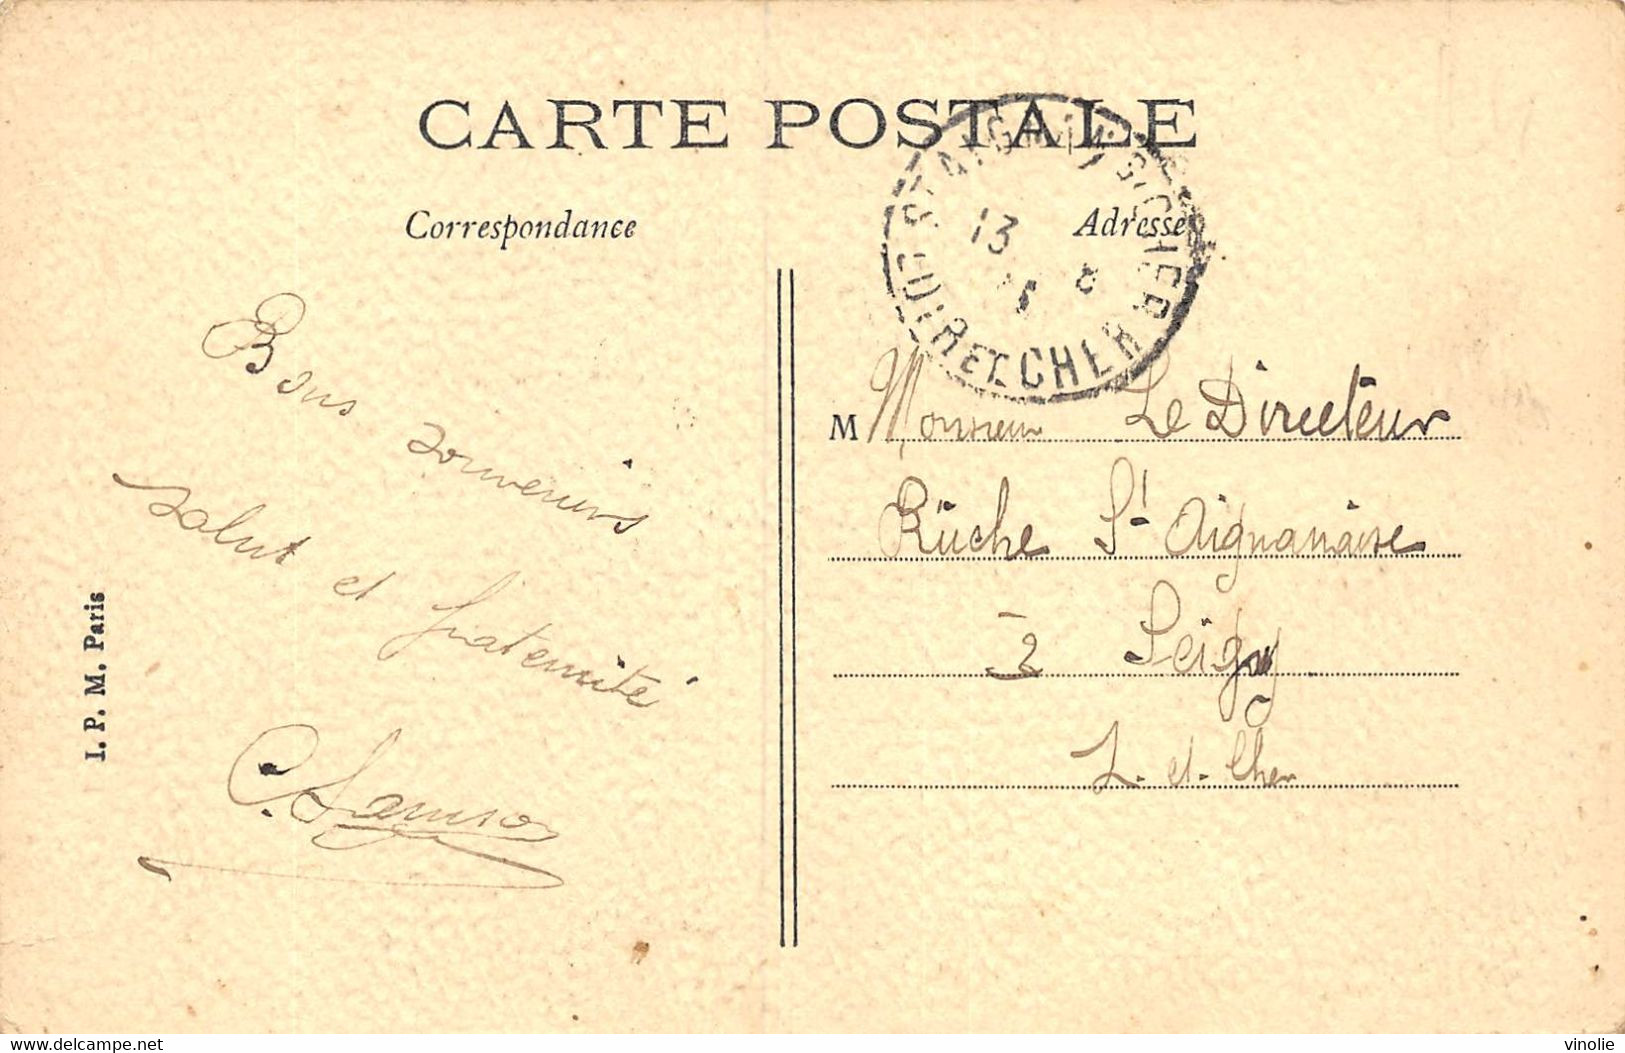 CARTE POSTALE
Correspondance
Adresse
ST AIGNAN S/ CHER
LOIR-ET-CHER
13
8
Bons souvenirs
salut et fraternité
I. P. M. Paris
M Monsieur Le Directeur
Ruche St Aignanaise
à Seigy
L.-et-Cher
delcampe.net
vinolie